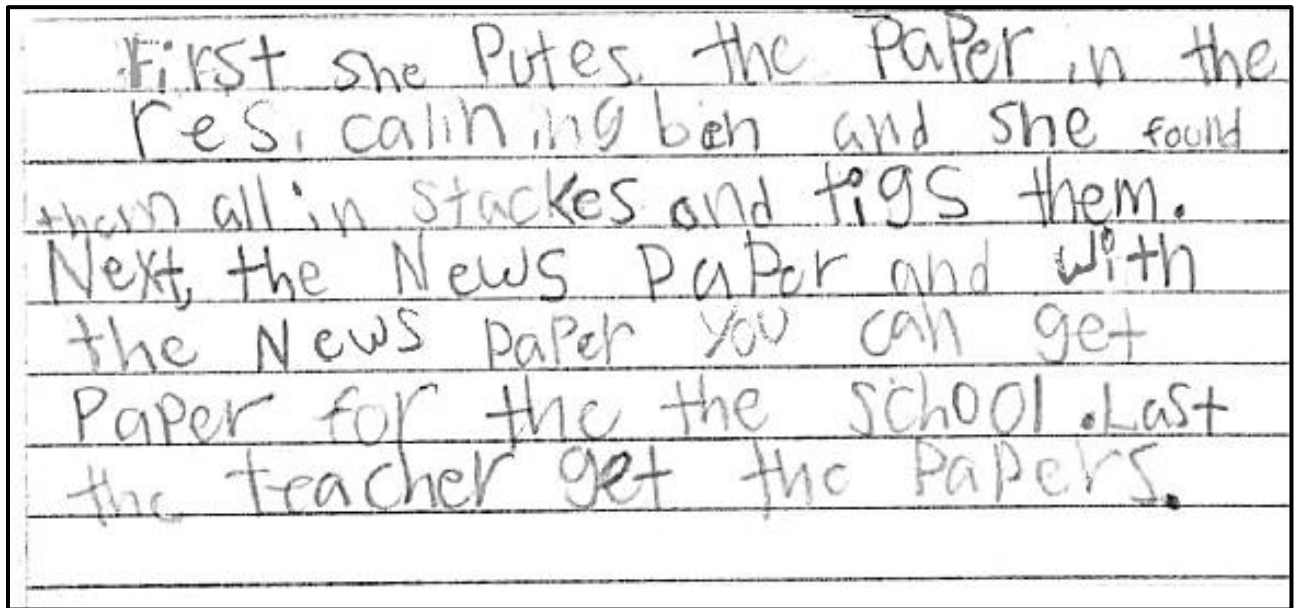 First she Putes the PaPer in the
res. calin ing bin and she found
them all in stackes and tigs them.
Next, the News PaPer and with
the News paper you can get
PaPer for the the school. Last
the teacher get the PaPers.